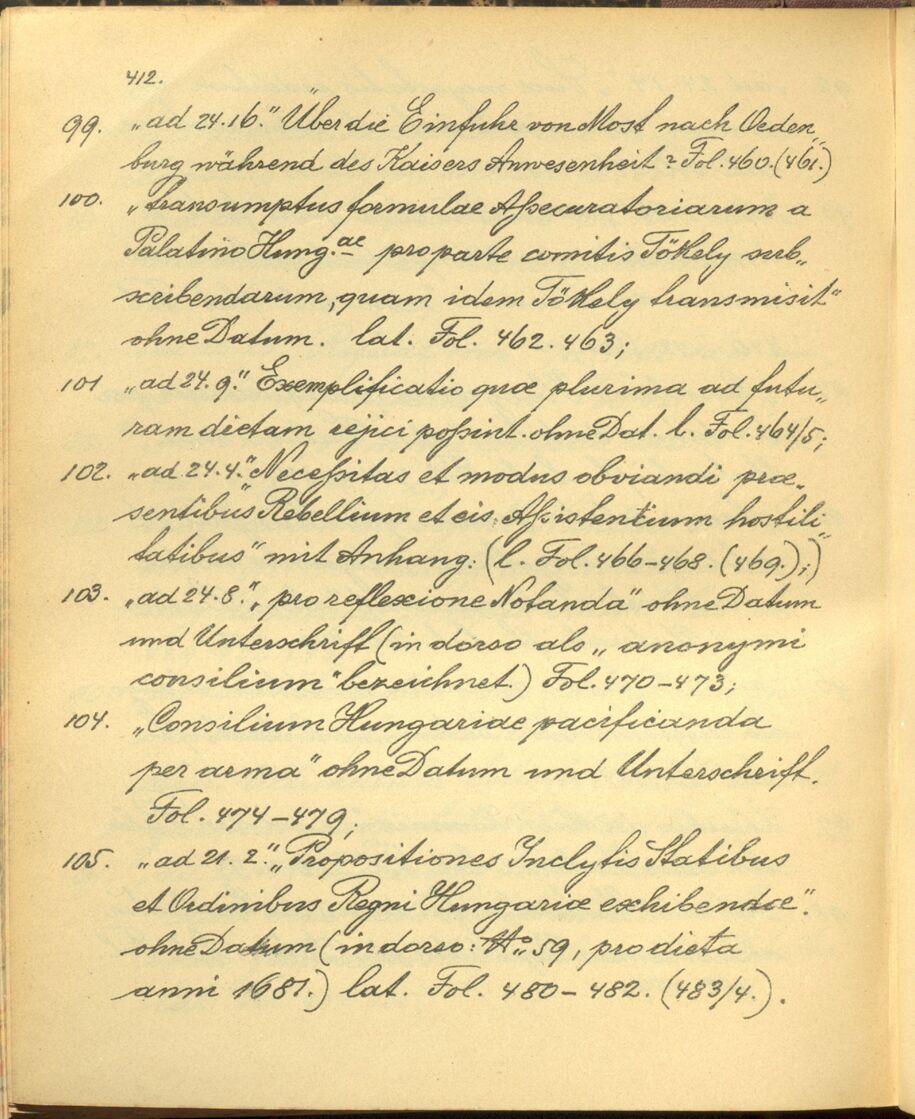 412.
99. „ad 24.16.“ Über die Einfuhr von Most nach Oeden„
burg während des Kaisers Anwesenheit? Fol. 460. (461.)
100. „transumptus formulae Assecuratoriarum a
Palatino Hung.ae pro parte comitis Tökely sub„
scribendarum, quam idem Tökely transmisit“
ohne Datum. lat. Fol. 462. 463;
101 „ad 24.9.“ Exemplificatio quæ plurima ad futu„
ram dictam rejici possint. ohne Dat. l. Fol. 464/5;
102. „ad 24.4.“ Necessitas et modus obviandi præ„
sentibus Rebellium et eis Assistentium hostili„
tatibus“ mit Anhang: (l. Fol. 466–468. (469.);)
103. „ad 24.8.“ „pro reflexione Notanda“ ohne Datum
und Unterschrift (in dorso als „anonymi
consilium“ bezeichnet.) Fol. 470–473;
104. „Consilium Hungariae pacificanda
per arma“ ohne Datum und Unterschrift.
Fol. 474–479;
105. „ad 21. 2.“ „Propositiones Inclytis Statibus
et Ordinibus Regni Hungariæ exhibendæ“.
ohne Datum (in dorso: No 59, pro dieta
anni 1681.) lat. Fol. 480–482. (483/4.).